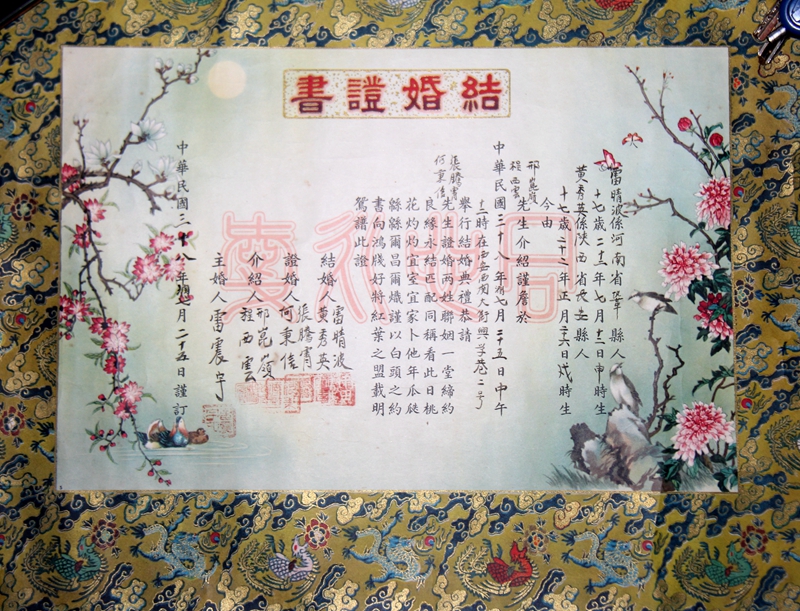 結婚證書
雷晴波係河南省鞏縣人
十七歲二十二年七月十二日申時生
黃秀英係陝西省長安縣人
十七歲二十二年正月二十六日戌時生
今由
邢崑嶺
程西雲
先生介紹謹詹於
中華民國三十八年閏七月二十五日中午
十二時在西安西關大街興學巷二号
舉行結婚典禮恭請
張騰霄
何秉信
先生證婚兩姓聯姻一堂締約
良緣永結匹配同稱看此日桃
花灼灼宜室宜家卜他年瓜瓞
緜緜爾昌爾熾謹以白頭之約
書向鴻牋好將紅葉之盟載明
鴛譜此證
結婚人
雷晴波
黃秀英
證婚人
張騰霄
何秉信
介紹人
邢崑嶺
程西雲
主婚人
雷震宇
中華民國三十八年閏七月二十五日謹訂